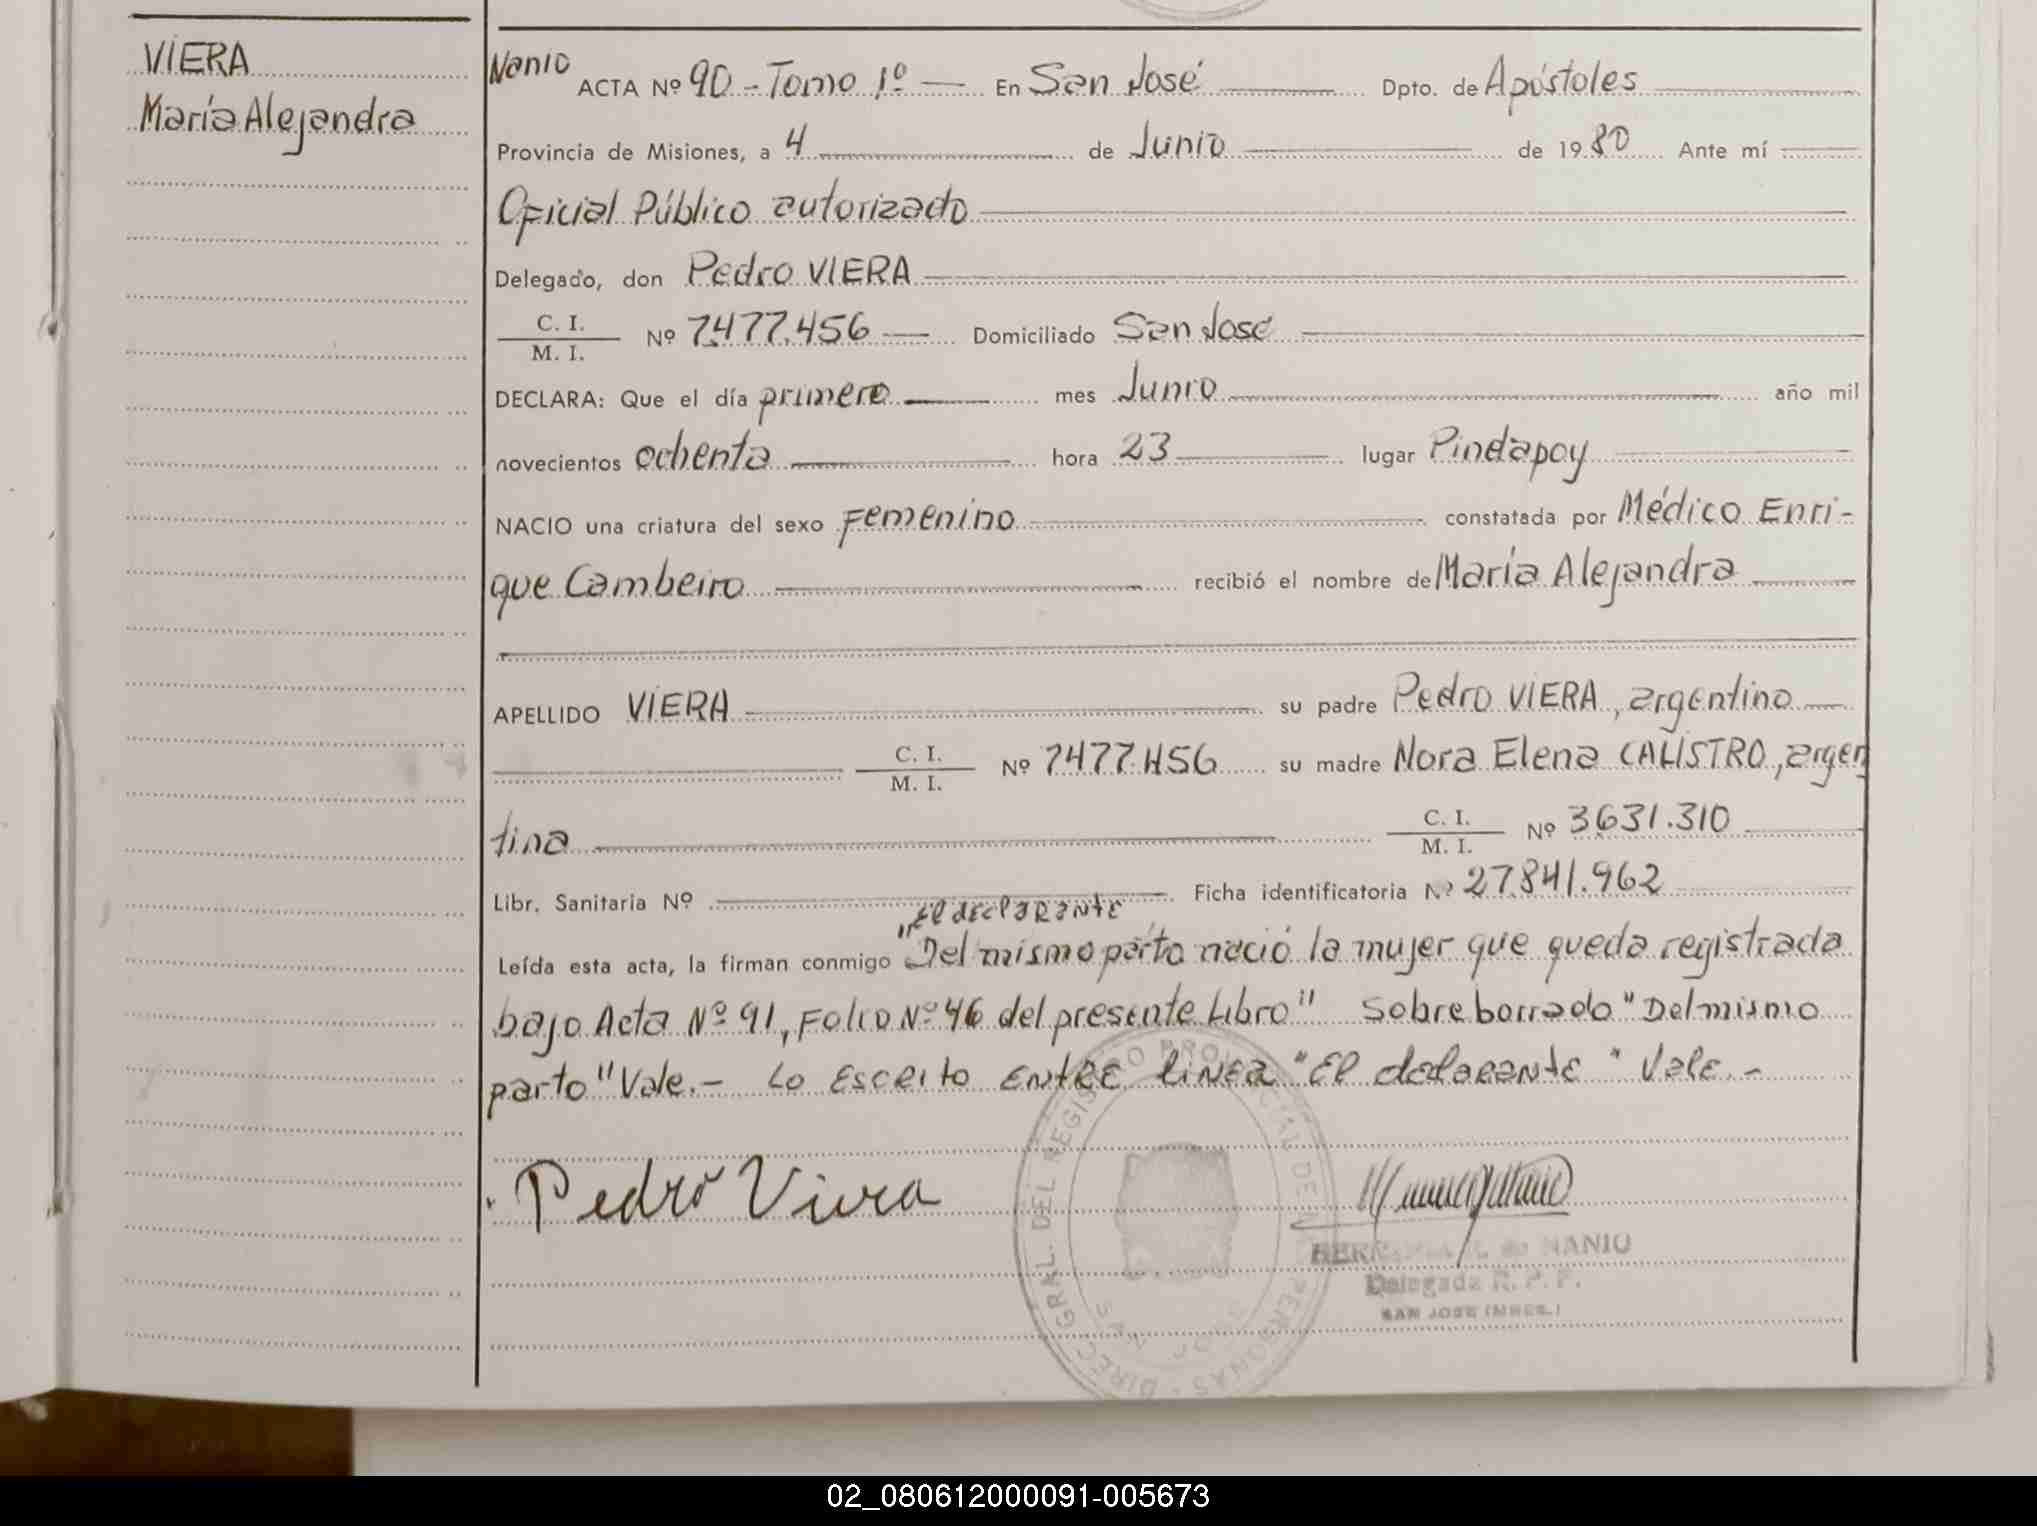 VIERA
María Alejandra
Nanio ACTA Nº 90 - Tomo 1º — En San José Dpto. de Apóstoles
Provincia de Misiones, a 4 de Junio de 1980 Ante mí
Oficial Público autorizado
Delegado, don Pedro VIERA
C. I.
M. I.
Nº 7477.456 — Domiciliado San José
DECLARA: Que el día primero mes Junio año mil
novecientos ochenta hora 23 lugar Pindapoy
NACIO una criatura del sexo Femenino constatada por Médico Enri-
que Cambeiro recibió el nombre de María Alejandra
APELLIDO VIERA su padre Pedro VIERA, argentino
C. I.
M. I.
Nº 7477.456 su madre Nora Elena CALISTRO, argen
tina C. I.
M. I.
Nº 3631.310
Libr. Sanitaria Nº Ficha identificatoria Nº 27.841.962
"El declarante
Leída esta acta, la firman conmigo "Del mismo parto nació la mujer que queda registrada
bajo Acta Nº 91, Folio Nº 46 del presente Libro" Sobre borrado "Del mismo
parto" Vale.- Lo Escrito ENTRE LINEA "El declarante" Vale.-
Pedro Viera
DIREC. GRAL. DEL REGISTRO PROVINCIAL DE PERSONAS
SAN JOSE
de NANIO
Delegada R. P. P.
SAN JOSE (MNES.)
02_080612000091-005673